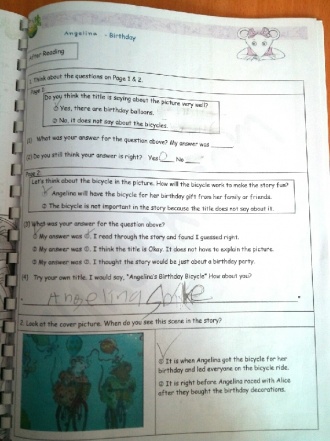 Angelina - Birthday
After Reading
1. Think about the questions on Page 1 & 2.
Page 1
Do you think the title is saying about the picture very well?
① Yes, there are birthday balloons.
② No, it does not say about the bicycles.
(1) What was your answer for the question above? My answer was
(2) Do you still think your answer is right? Yes No
Page 2
Let's think about the bicycle in the picture. How will the bicycle work to make the story fun?
Angelina will have the bicycle for her birthday gift from her family or friends.
② The bicycle is not important in the story because the title does not say about it.
(3) What was your answer for the question above?
① My answer was I read through the story and found I guessed right.
② My answer was I think the title is Okay. It does not have to explain the picture.
③ My answer was I thought the story would be just about a birthday party.
(4) Try your own title. I would say, "Angelina's Birthday Bicycle" How about you?
Angelina
2. Look at the cover picture. When do you see this scene in the story?
① It is when Angelina got the bicycle for her
birthday and led everyone on the bicycle ride.
② It is right before Angelina raced with Alice
after they bought the birthday decorations.